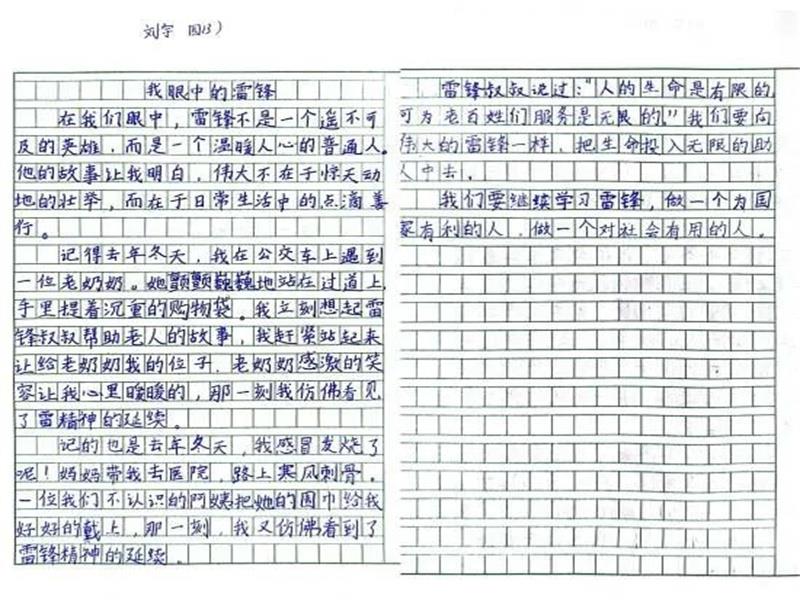 刘宇 四(3)
我眼中的雷锋
在我们眼中，雷锋不是一个遥不可
及的英雄，而是一个温暖人心的普通人。
他的故事让我明白，伟大不在于惊天动
地的壮举，而在于日常生活中的点滴善
行。
记得去年冬天，我在公交车上遇到
一位老奶奶。她颤颤巍巍地站在过道上，
手里提着沉重的购物袋。我立刻想起雷
锋叔叔帮助老人的故事，我赶紧站起来
让给老奶奶我的位子，老奶奶感激的笑
容让我心里暖暖的，那一刻我仿佛看见
了雷精神的延续。
记的也是去年冬天，我感冒发烧了
呢！妈妈带我去医院，路上寒风刺骨，
一位我们不认识的阿姨把她的围巾给我
好好的戴上，那一刻，我又仿佛看到了
雷锋精神的延续。
雷锋叔叔说过：“人的生命是有限的，
可为老百姓们服务是无限的”我们要向
伟大的雷锋一样，把生命投入无限的助
人中去。
我们要继续学习雷锋，做一个为国
家有利的人，做一个对社会有用的人。